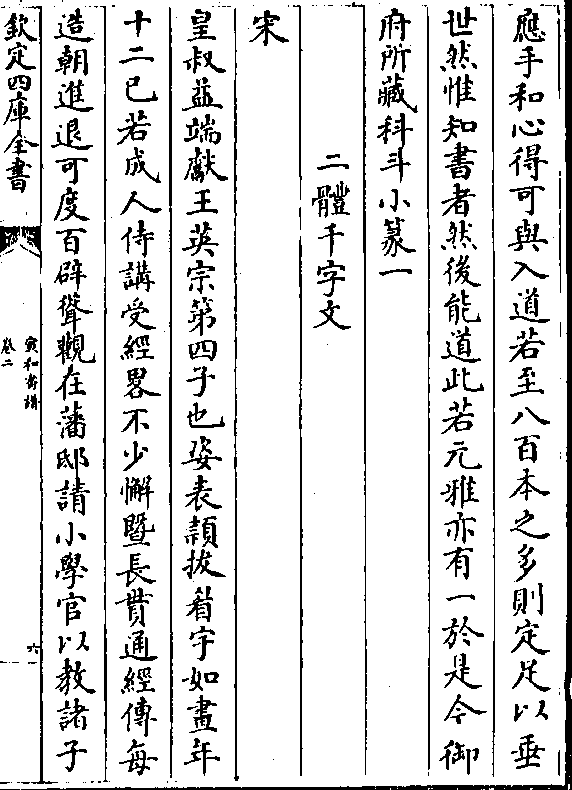 應手和心得可與入道若至八百本之多則定足以垂
世然惟知書者然後能道此若元雅亦有一於是今御
府所藏科斗小篆一
二體千字文
宋
皇叔益端獻王英宗第四子也姿表頴拔眉宇如畫年
十二已若成人侍講受經畧不少懈暨長貫通經傳每
造朝進退可度百辟聳觀在藩邸請小學官以教諸子
欽定四庫全書
宣和書譜
卷二
六